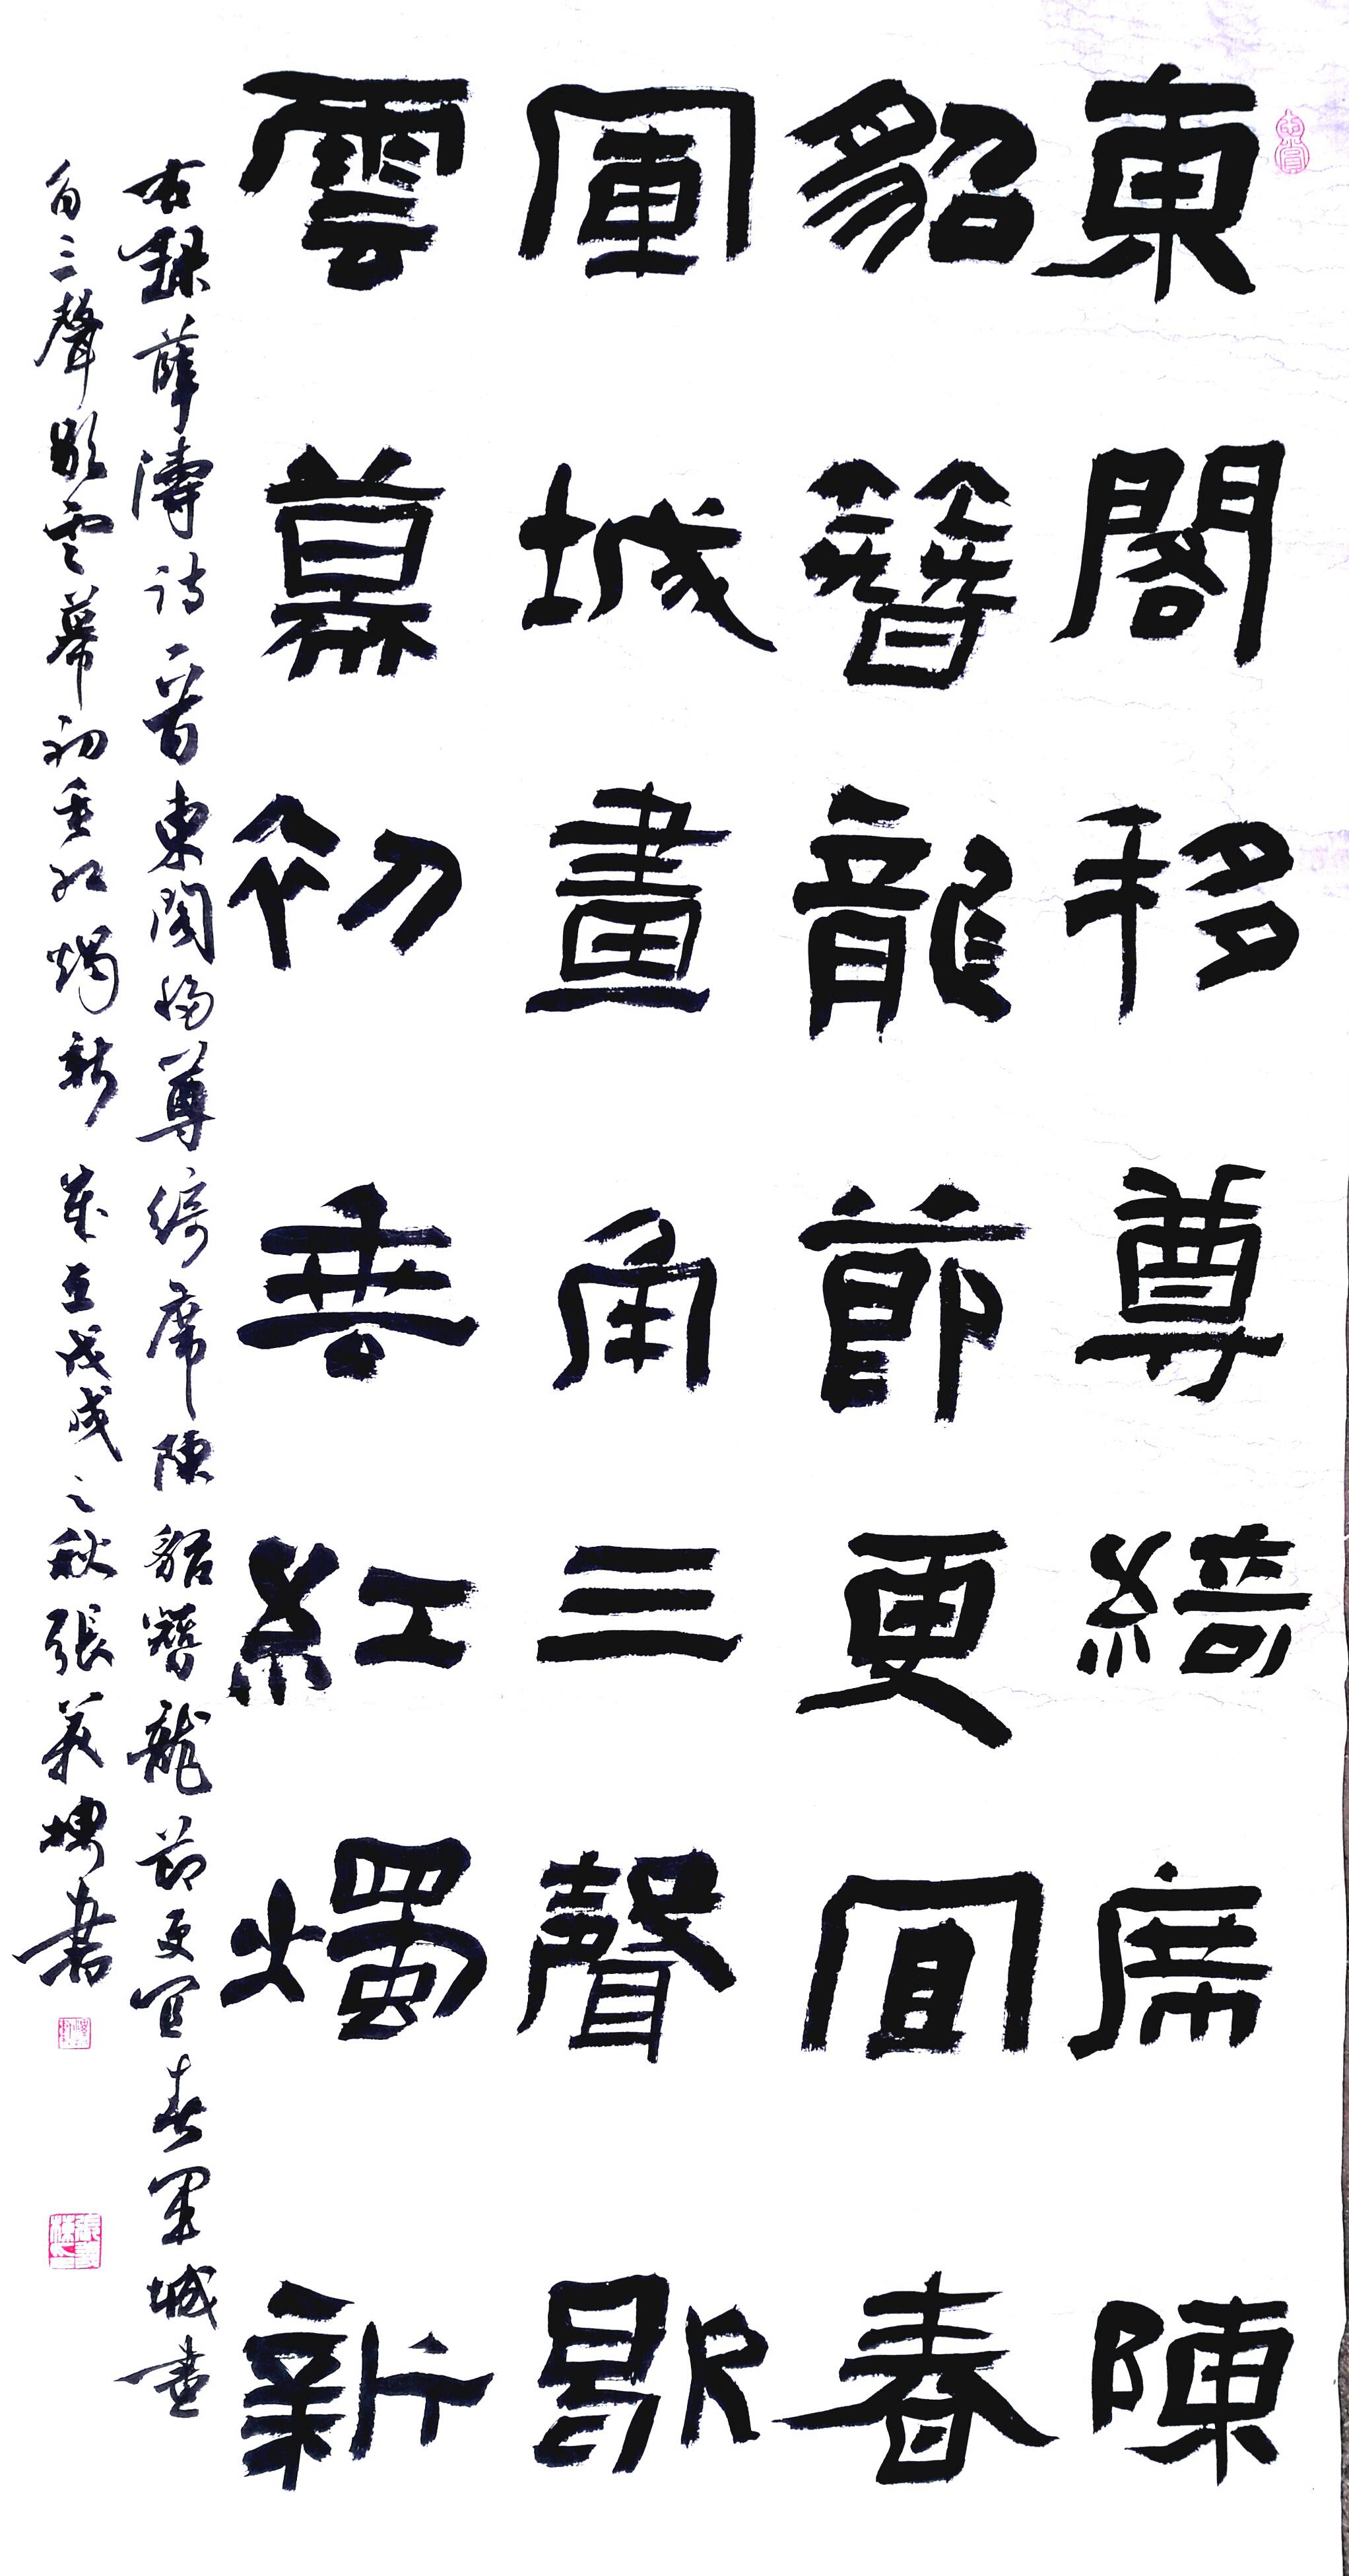 東閣移尊綺席陳
貂簪龍節更宜春
軍城畫角三聲歇
雲幕初垂紅燭新
右録薛濤诗一首東閣移尊綺席陳貂簪龍節更宜春軍城畫
角三聲歇雲幕初垂紅燭新 歲在戊戌之秋張義棟書